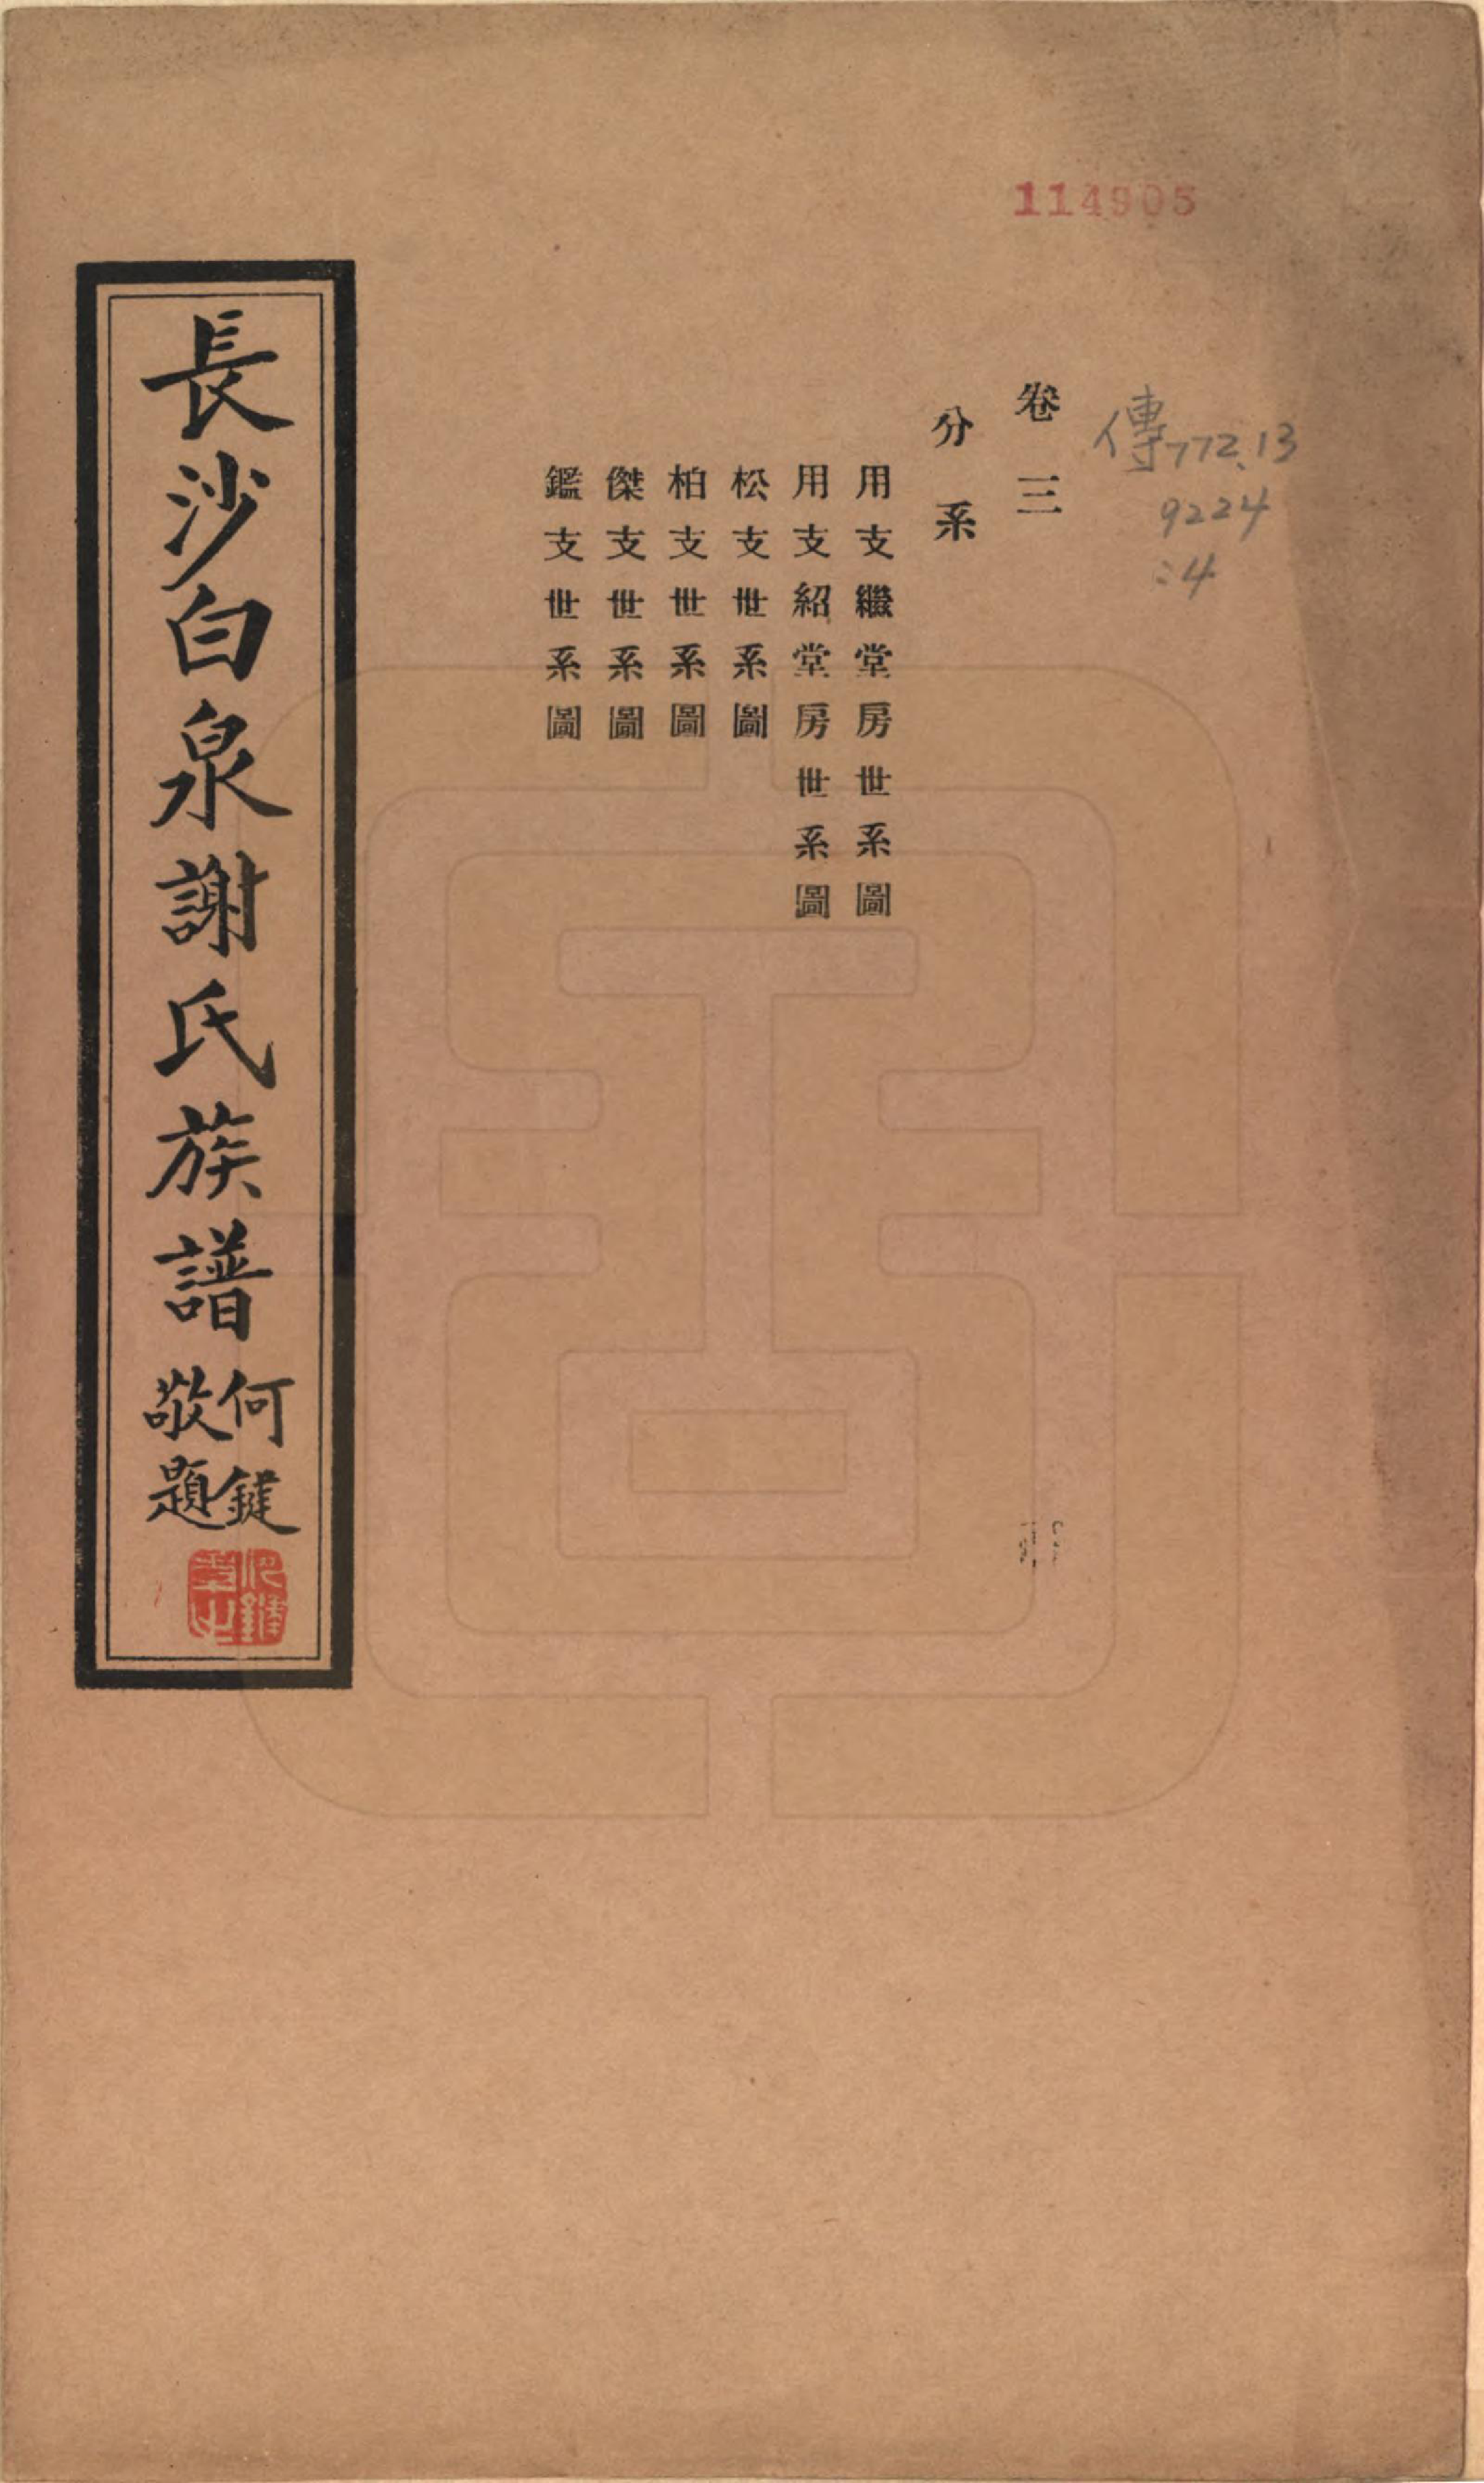 114905
傳772.13
9224
:4
卷三
分系
用支繼堂房世系圖
用支紹堂房世系圖
松支世系圖
柏支世系圖
傑支世系圖
鑑支世系圖
長沙白泉謝氏族譜
何鍵
敬題